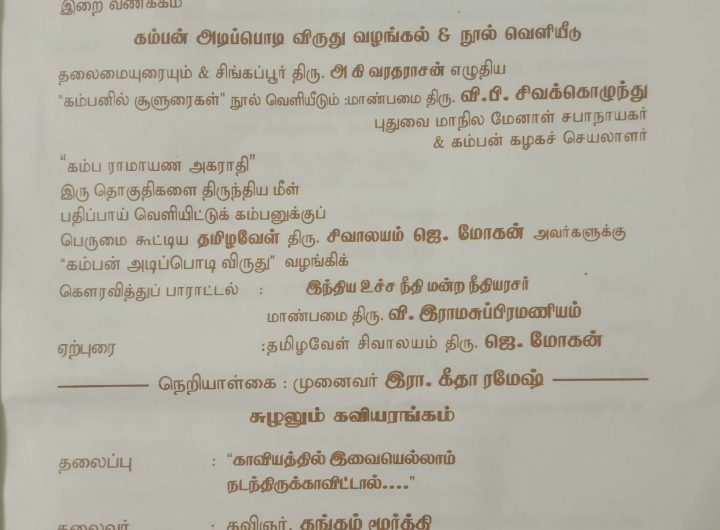 இறை வணக்கம்
கம்பன் அடிப்பொடி விருது வழங்கல் & நூல் வெளியீடு
தலைமையுரையும் & சிங்கப்பூர் திரு. அ கி வரதராசன் எழுதிய
“கம்பனில் சூளுரைகள்” நூல் வெளியீடும் :மாண்பமை திரு. வி.பி. சிவக்கொழுந்து
புதுவை மாநில மேனாள் சபாநாயகர்
& கம்பன் கழகச் செயலாளர்
“கம்ப ராமாயண அகராதி”
இரு தொகுதிகளை திருந்திய மீள்
பதிப்பாய் வெளியிட்டுக் கம்பனுக்குப்
பெருமை கூட்டிய தமிழவேள் திரு. சிவாலயம் ஜெ. மோகன் அவர்களுக்கு
“கம்பன் அடிப்பொடி விருது” வழங்கிக்
கௌரவித்துப் பாராட்டல் : இந்திய உச்ச நீதி மன்ற நீதியரசர்
மாண்பமை திரு. வி. இராமசுப்பிரமணியம்
ஏற்புரை :தமிழவேள் சிவாலயம் திரு. ஜெ. மோகன்
நெறியாள்கை : முனைவர் இரா. கீதா ரமேஷ்
சுழலும் கவியரங்கம்
தலைப்பு : “காவியத்தில் இவையெல்லாம்
நடந்திருக்காவிட்டால்....”
தலைவர் : கவிஞர். தங்கம் மூர்த்தி